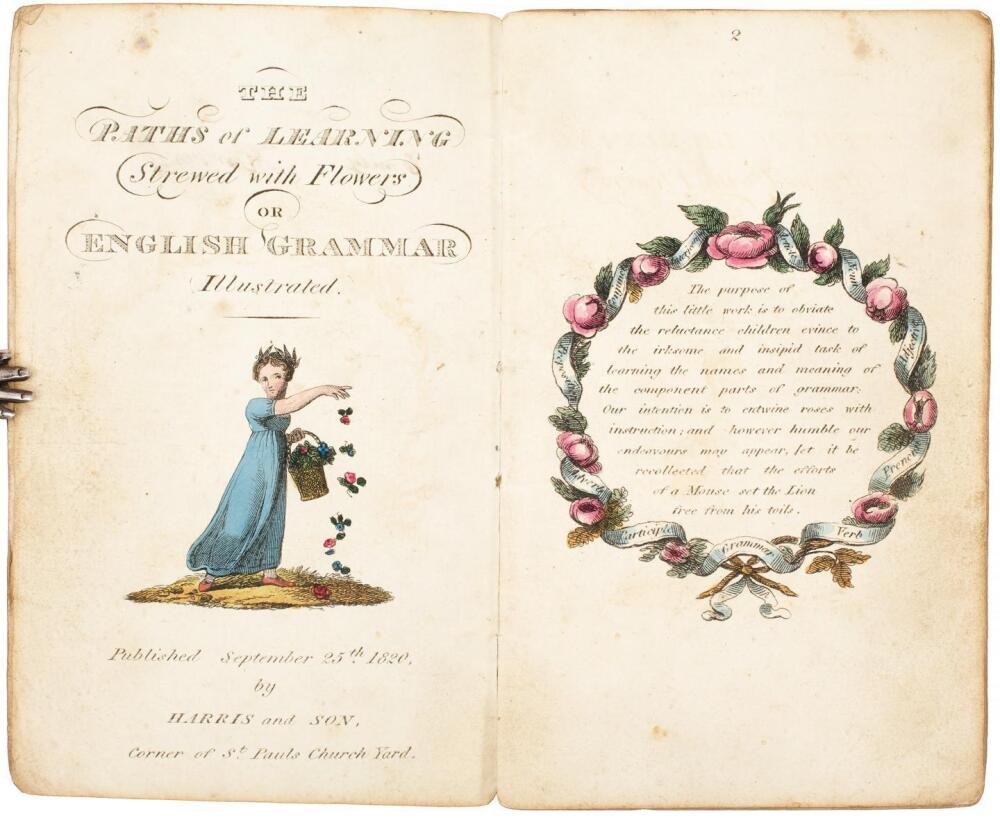 THE
PATHS of LEARNING
Strewed with Flowers
OR
ENGLISH GRAMMAR
Illustrated.
Published September 25th. 1820,
by
HARRIS and SON,
Corner of St. Pauls Church Yard.
2
Interjection
Article
Noun
Adjective
Pronoun
Verb
Grammar
Participle
Adverb
Preposition
Conjunction
The purpose of
this little work is to obviate
the reluctance children evince to
the irksome and insipid task of
learning the names and meaning of
the component parts of grammar:
Our intention is to entwine roses with
instruction; and however humble our
endeavours may appear, let it be
recollected that the efforts
of a Mouse set the Lion
free from his toils.